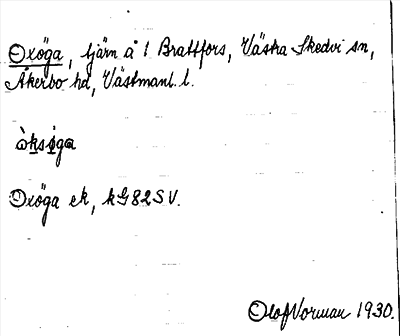 Oxöga, tjärn å 1 Brattfors, Västra Skedvi sn,
Åkerbo hd, Västmanl. l.
òksøga
Oxöga ek, kG82SV.
Olof Norman 1930.